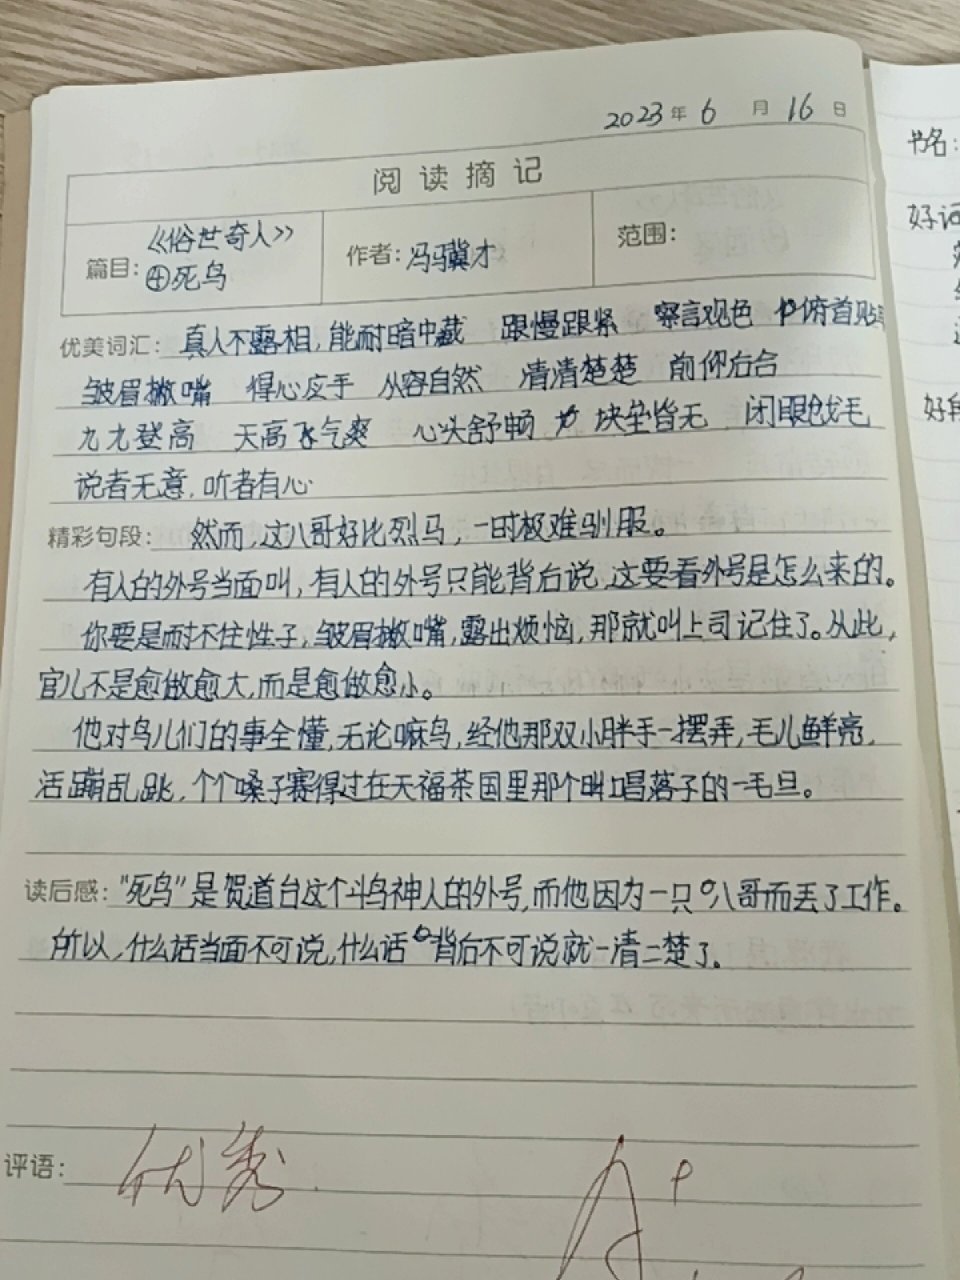 2023年6月16日
阅读摘记
篇目：《俗世奇人》
④死鸟
作者：冯骥才
范围：
书名：
优美词汇：真人不露相，能耐暗中藏 跟慢跟紧 察言观色 俯首贴
好词
皱眉撇嘴 得心应手 从容自然 清清楚楚 前仰后合
好段
九九登高 天高气爽 心头舒畅 块垒皆无 闭眼戗毛
说者无意，听者有心
精彩句段：然而，这八哥好比烈马，一时极难驯服。
有人的外号当面叫，有人的外号只能背后说，这要看外号是怎么来的。
你要是耐不住性子，皱眉撇嘴，露出烦恼，那就叫上司记住了。从此，
官儿不是愈做愈大，而是愈做愈小。
他对鸟儿们的事全懂，无论嘛鸟，经他那双小胖手一摆弄，毛儿鲜亮，
活蹦乱跳，个个嗓子赛得过在天福茶园里那个唱落子的一毛旦。
读后感：“死鸟”是贺道台这个斗鸟神人的外号，而他因为一只八哥而丢了工作。
所以，什么话当面不可说，什么话背后不可说就一清二楚了。
评语：优秀 A+